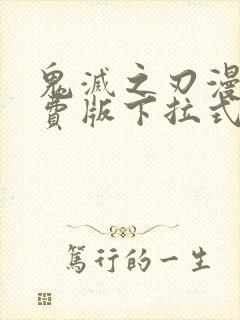 鬼滅之刃漫
費版下拉式
篤行的一生